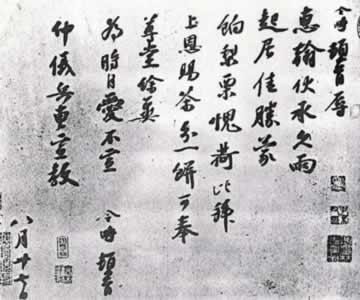 令畤頓首辱
惠翰伏承久雨
起居佳勝蒙
餉梨栗愧荷比拜
上恩賜茶分一餅可奉
尊堂餘冀
為時自愛不宣　令畤頓首
仲儀兵曹宣教
八月廿七日